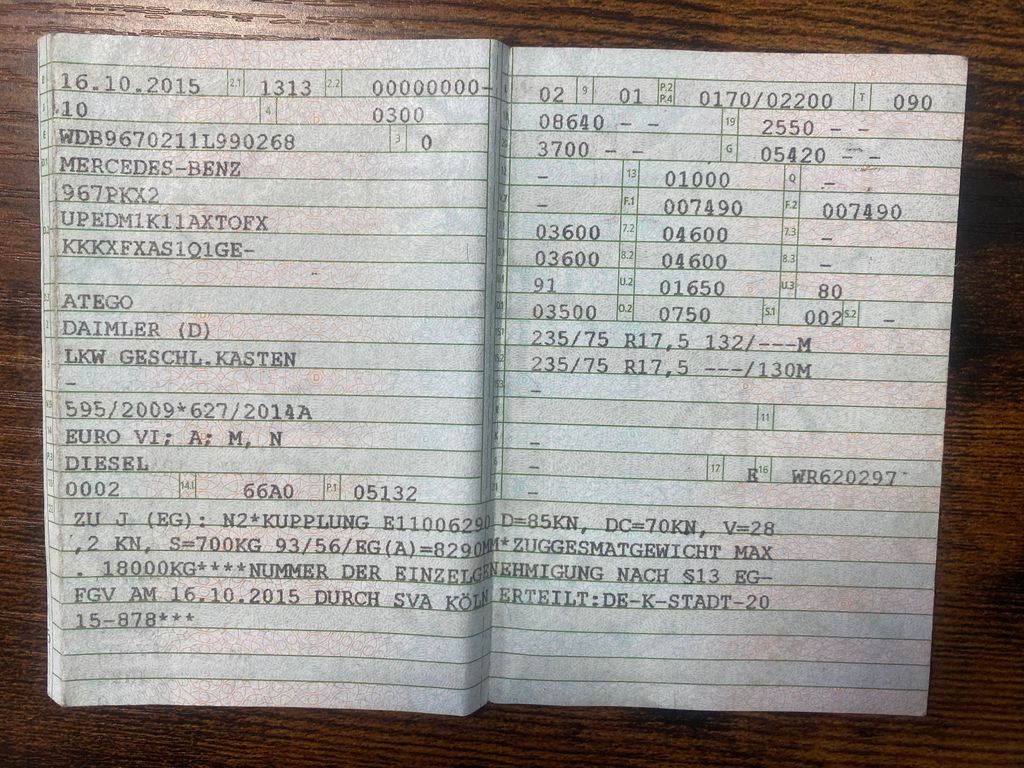 16.10.2015 2.1 1313 2.2 00000000-
.10 4 0300
WDB9670211L990268 3 0
MERCEDES-BENZ
967PKX2
UPEDM1K11AXTOFX
KKKXFXAS1Q1GE-
-
ATEGO
DAIMLER (D)
LKW GESCHL.KASTEN
-
595/2009*627/2014A
EURO VI; A; M, N
DIESEL
0002 14.1 66A0 P.1 05132
02 9 01 P.2 P.4 0170/02200 T 090
08640 - - 19 2550 - -
3700 - - G 05420 - -
- 13 01000 Q -
- F.1 007490 F.2 007490
03600 7.2 04600 7.3 -
03600 8.2 04600 8.3 -
91 U.2 01650 U.3 80
03500 O.2 0750 S.1 002 S.2 -
235/75 R17,5 132/---M
235/75 R17,5 ---/130M
-
11
-
- 17 E 16 WR620297
-
ZU J (EG): N2*KUPPLUNG E11006290 D=85KN, DC=70KN, V=28
,2 KN, S=700KG 93/56/EG(A)=8290MM*ZUGGESMATGEWICHT MAX
. 18000KG****NUMMER DER EINZELGENEHMIGUNG NACH §13 EG-
FGV AM 16.10.2015 DURCH SVA KÖLN ERTEILT:DE-K-STADT-20
15-878***